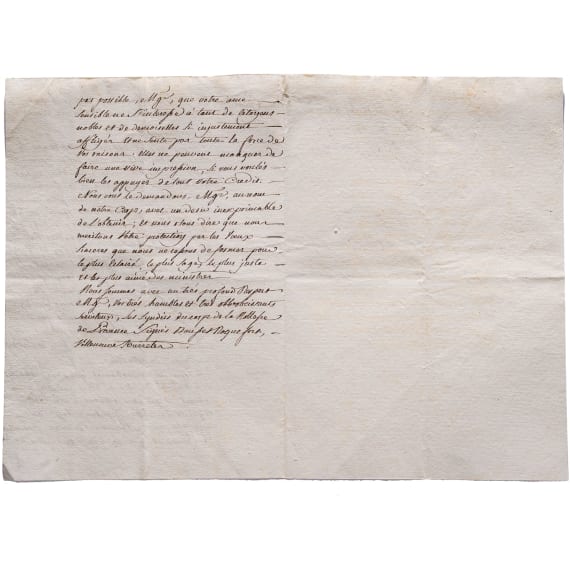 pas possible, Mgr, que votre ame
sensible ne s'interesse à tant de Citoyens
nobles et de demoiselles si injustement
affligés
par toute la force de
vos raisons. Elles ne peuvent manquer de
faire une vive impression, si vous voulés
bien les appuyer de tout votre Credit.
Nous vous le demandons, Mgr, au nom
de notre Corps, avec un desir inexprimable
de l'obtenir, et nous osons dire que nous
meritons votre protection par les voeux
sinceres que nous ne cessons de former pour
le plus éclairé, le plus sage, le plus juste
et les plus aimé des ministres
Nous sommes avec un très profond Respect
Mgr, vos très humbles et très obbeissants
serviteurs, les syndics du corps de la Noblesse
de Provence Signés
Villeneuve